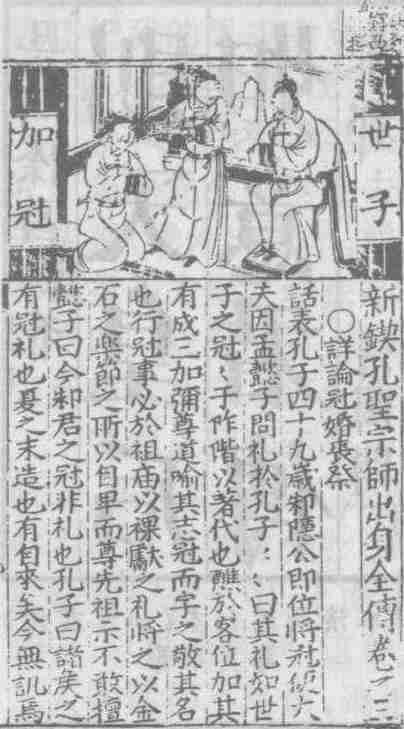 世子
加冠
新鍥孔聖宗師出身全傳卷之三
○詳論冠婚喪祭
話表孔子四十九歲邾隱公即位將冠使大
夫因孟懿子問礼於孔子〻〻曰其礼如世
子之冠〻于阼階以著代也醮於客位加其
有成三加彌尊道喻其志冠而字之敬其名
也行冠事必於祖庙以裸獻之礼將之以金
石之樂節之所以自卑而尊先祖示不敢擅
懿子曰今邾君之冠非礼也孔子曰諸侯之
有冠礼也夏之末造也有自來矣今無訊焉